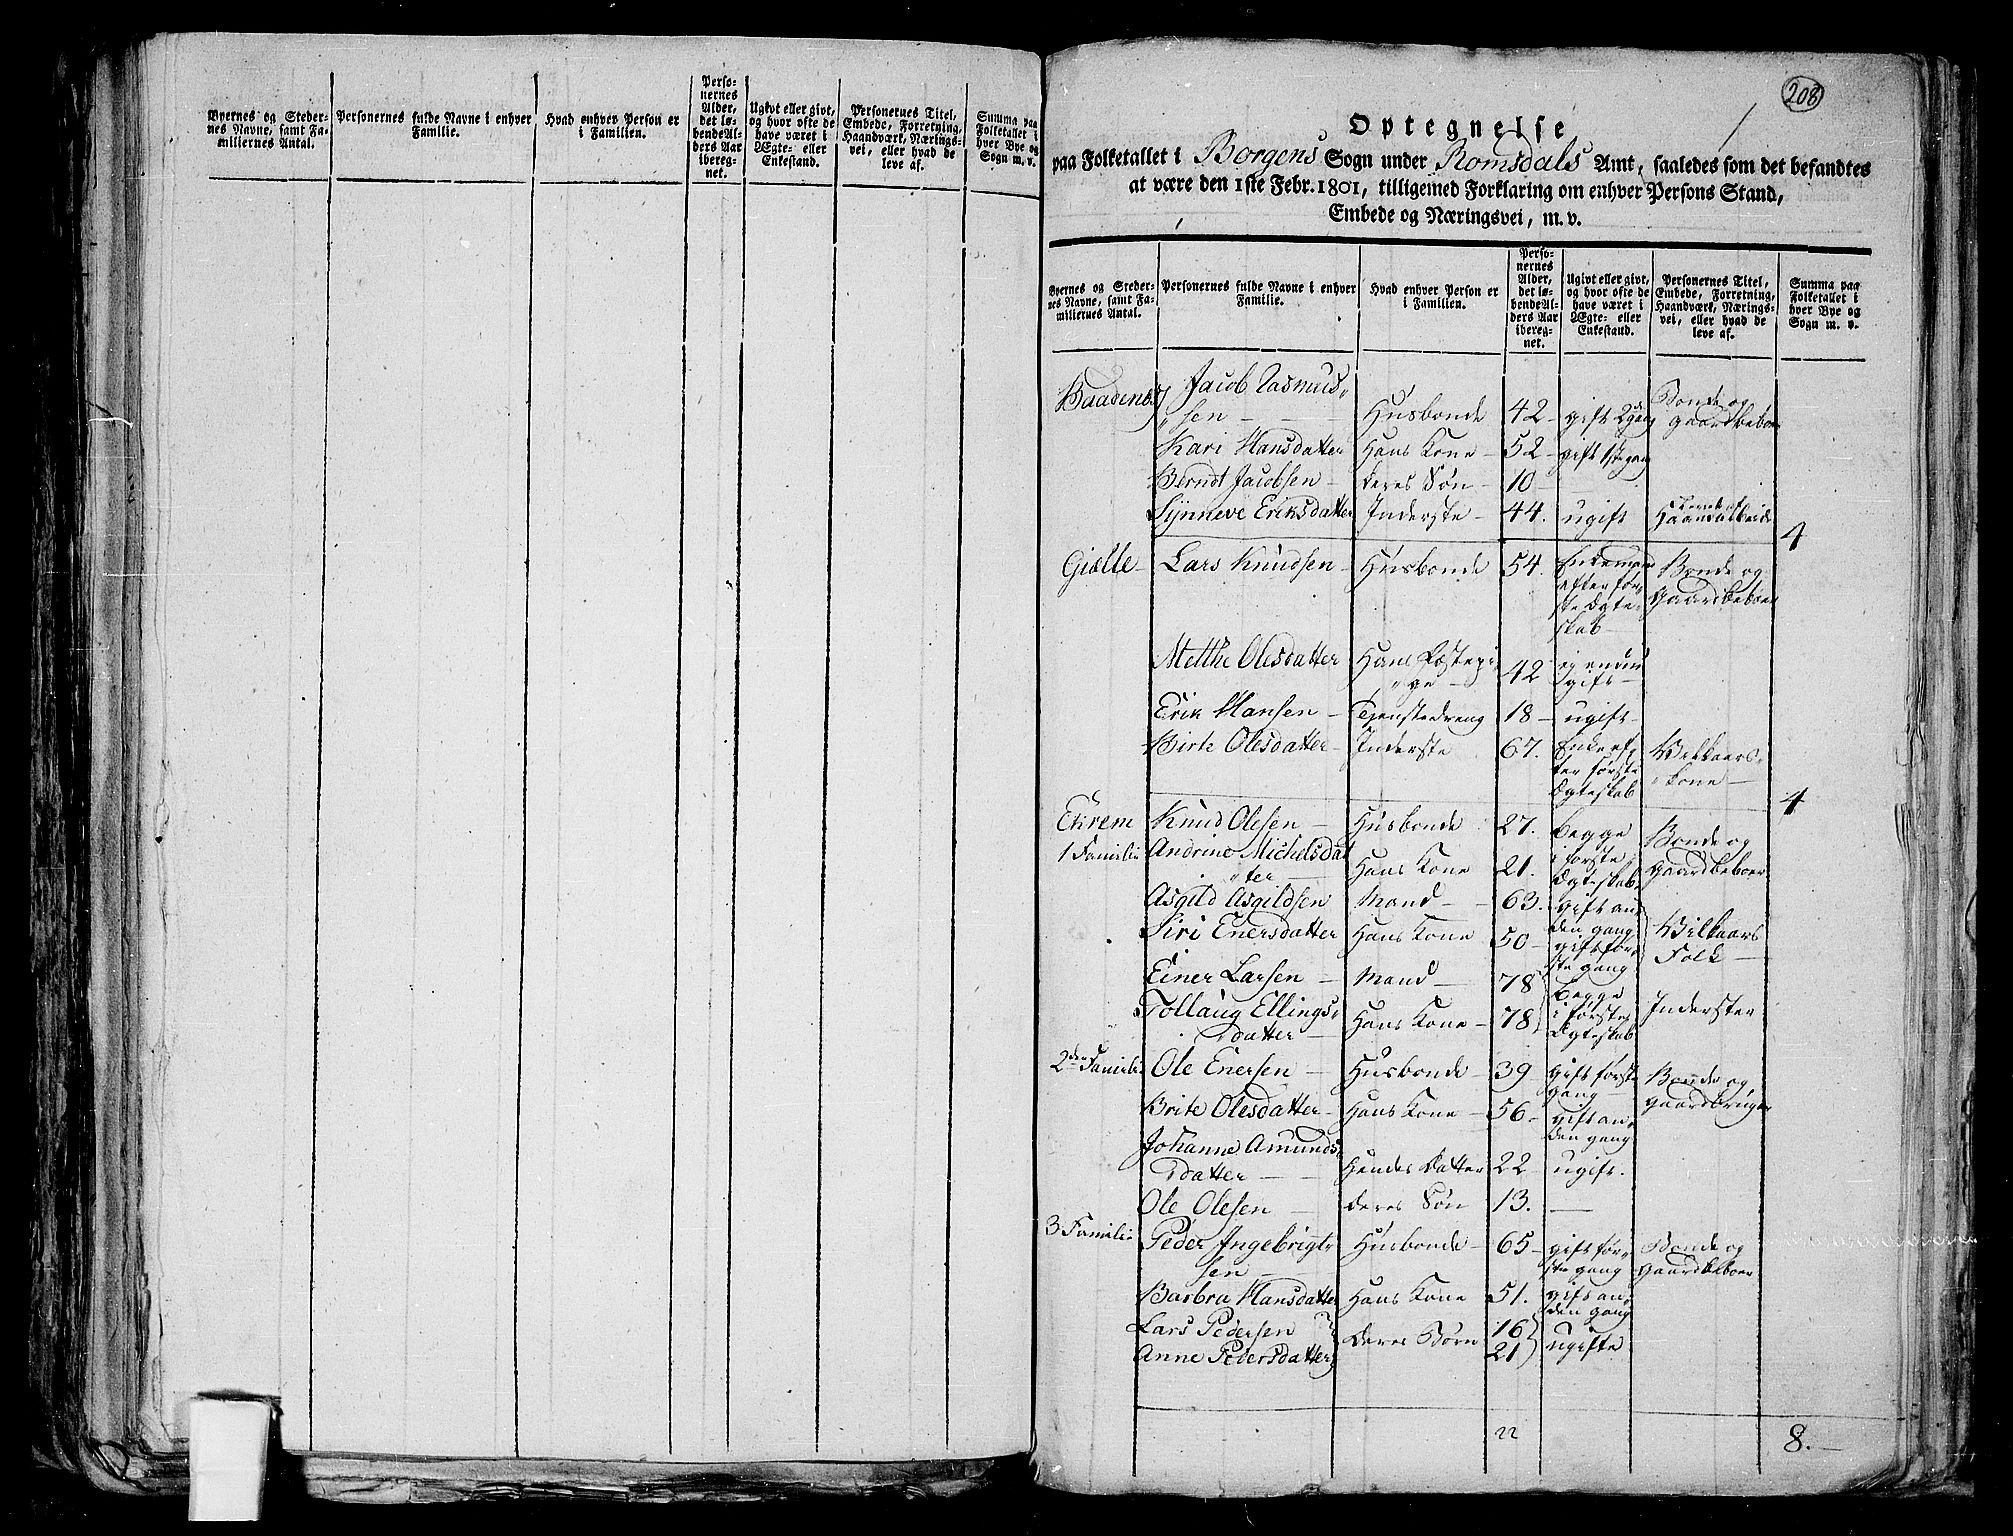 Byernes og Steder-
nes Navne, samt Fa-
miliernes Antal.
Personernes fulde Navne i enhver
Familie.
Hvad enhver Person er
i Familien.
Perso-
nernes
Alder,
det lø-
bende Al-
ders Aar
ibereg-
net.
Ugivt eller givt,
og hvor ofte de
have været i
Ægte- eller
Enkestand.
Personernes Titel,
Embede, Forretning,
Haandværk, Nærings-
vei, eller hvad de
leve af.
Summa paa
Folketallet i
hver Bye og
Sogn m. v.
208
1
Optegnelse
paa Folketallet i Borgens Sogn under Romsdals Amt, saaledes som det befandtes
at være den 1ste Febr. 1801, tilligemed Forklaring om enhver Persons Stand,
Embede og Næringsvei, m. v.
Byernes og Steder-
nes Navne, samt Fa-
miliernes Antal.
Personernes fulde Navne i enhver
Familie.
Hvad enhver Person er
i Familien.
Perso-
nernes
Alder,
det lø-
bende Al-
ders Aar
ibereg-
net.
Ugivt eller givt,
og hvor ofte de
have været i
Ægte- eller
Enkestand.
Personernes Titel,
Embede, Forretning,
Haandværk, Nærings-
vei, eller hvad de
leve af.
Summa paa
Folketallet i
hver Bye og
Sogn m. v.
Baadenes Jacob Rasmus-
sen - Husbonde 42 - gift 2 gang Bonde og
gaardbeboer
Kari Hansdatter Hans Kone - 52 - gift 1ste gang
Berndt Jacobsen - deres Søn - 10 -
Synneve Eriksdatter Inderste - 44. ugift Haandarbeide
4
Gielle - Lars Knudsen - Husbonde 54. Enkemand Bonde og
efter før-
ste Ægte- Gaardbeboer
skab -
Metthe Olesdatter Hans Fæstepi-
ge - 42 ej endnu
gift -
Erik Hansen - Tienstedreng 18 - ugift -
Birte Olesdatter - Inderste 67. Enke ef-
ter første
Ægteskab Vilkaars-
kone -
4
Ekrem Knud Olesen - Husbonde 27. begge Bonde og
1 Familie Andrine Michelsdat-
ter - Hans Kone 21. i første
Ægteskab Gaardbeboer
Asgild Asgildsen Mand - 63. gift an-
den gang
Siri Enersdatter Hans Kone 50 - gift før-
ste gang Vilkaars
Folk -
Einer Larsen - Mand - 78 begge
Tollaug Ellings-
datter - Hans Kone - 78 i første
Ægteskab Inderster
2den Familie Ole Enersen - Husbonde - 39 - gift første
gang - Bonde og
Gaardbruger
Brite Olesdatter - Hans Kone - 56 - gift an-
den gang
Johanne Amunds-
datter - Hendes Datter 22 - ugift.
Ole Olesen - deres Søn 13. -
3 Familie Peder Ingebrigt-
sen - Husbonde - 65 - gift før-
ste gang Bonde og
Gaardbeboer
Barbra Hansdatter Hans Kone 51. gift an-
den gang
Lars Pedersen deres Børn 16 ugifte
Anne Pedersdatter 21
22
8. -